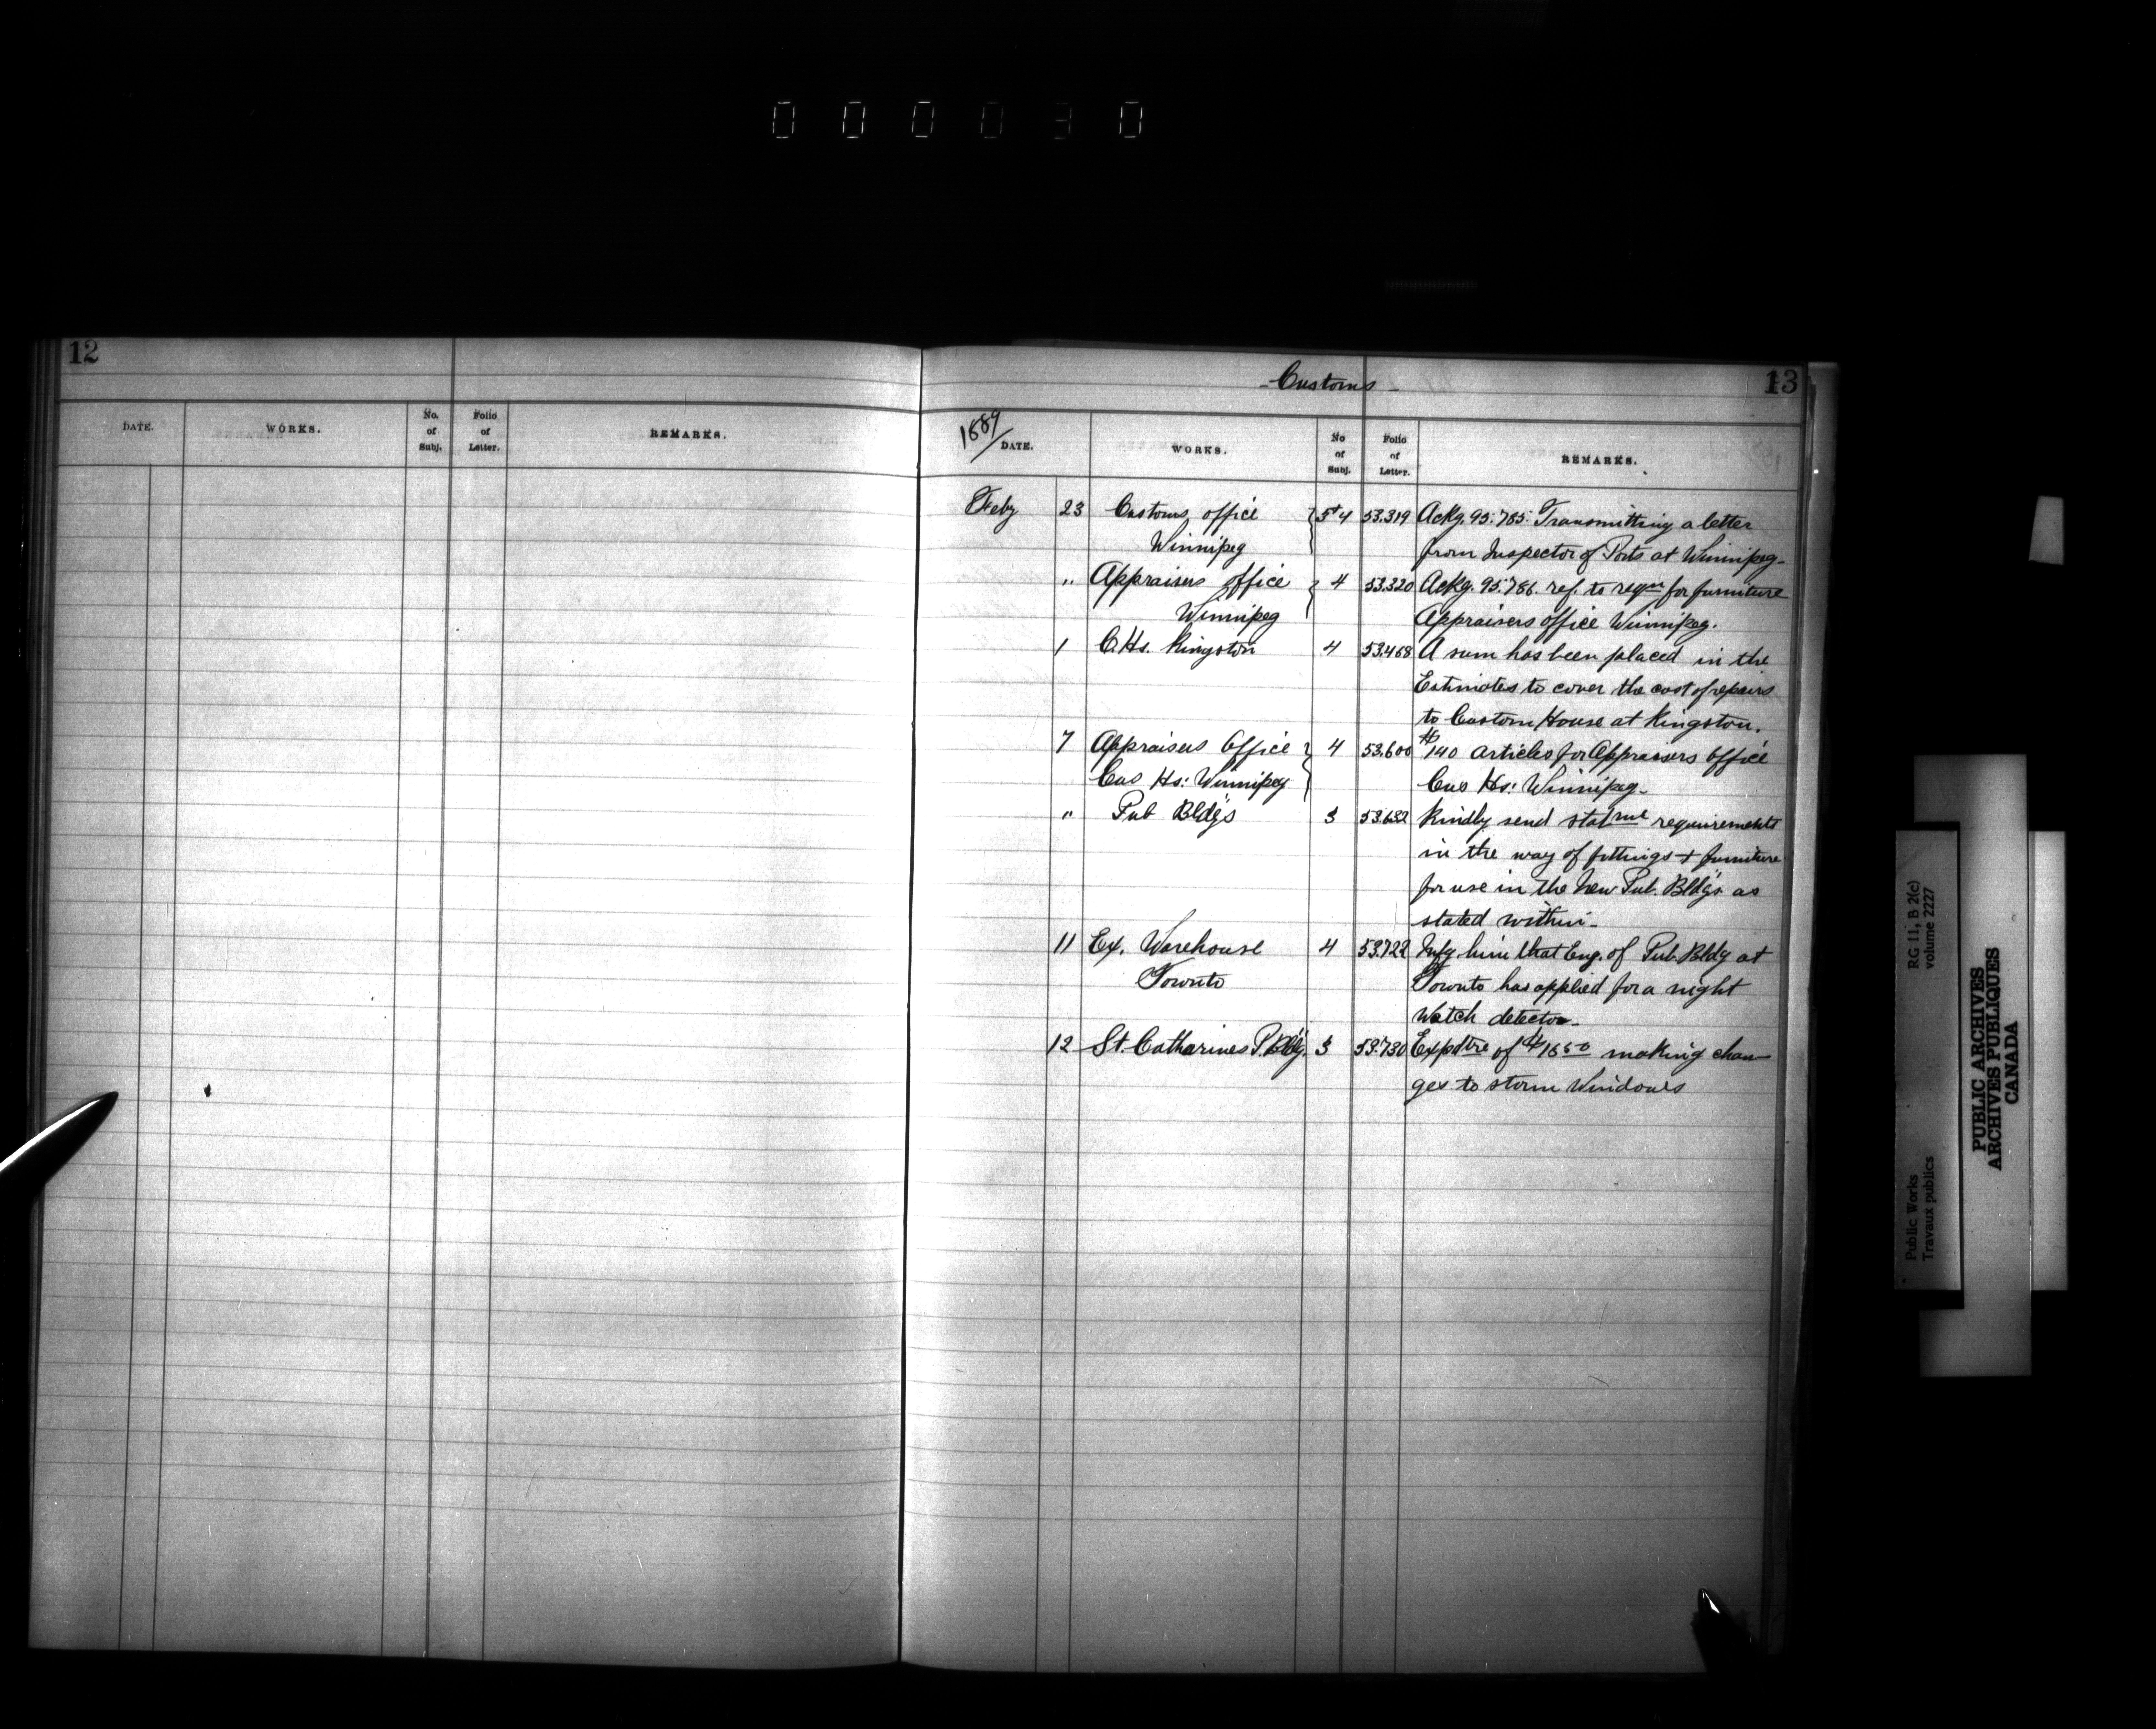 000030
12
DATE. WORKS. No. of Subj. Folio of Letter. REMARKS.
- Customs - 13
1889 DATE. WORKS. No of Subj. Folio of Letter. REMARKS.
Feby 23 Customs office 5+4 53.319 Ackg. 95.785. Transmitting a letter
Winnipeg from Inspector of Ports at Winnipeg-
" Appraisers office 4 53.320 Ackg. 95.786. ref. to reqn for furniture
Winnipeg Appraisers office Winnipeg.
1 C.Hs. Kingston 4 53.468 A sum has been placed in the
Estimates to cover the cost of repairs
to Custom House at Kingston.
7 Appraisers Office 4 53.600 $140 articles for Appraisers office
Cus Hs: Winnipeg Cus Hs: Winnipeg-
" Pub Bldgs 3 53.632 Kindly send requirements
in the way of fittings + furniture
for use in the New Pub. Bldgs as
stated within-
11 Ex. Warehouse 4 53.722 Infg him that Eng. of Pub. Bldg at
Toronto Toronto has applied for a night
Watch detector-
12 St. Catharines P. Bldg. 3 53.730 Expdtre of making chan-
ges to storm Windows
Public Works
Travaux publics
RG 11, B 2(c)
volume 2227
PUBLIC ARCHIVES
ARCHIVES PUBLIQUES
CANADA